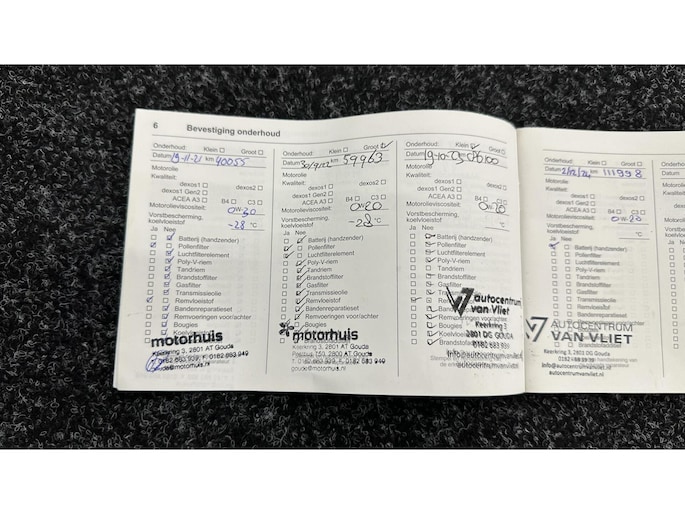 6 Bevestiging onderhoud
Onderhoud: Klein Groot
Datum 19-11-21 km 40055
Motorolie
Kwaliteit: dexos1 dexos2
dexos1 Gen2
ACEA A3 B4 C3
Motorolieviscositeit: 0W-30
Vorstbescherming, koelvloeistof -28 °C
Ja Nee
Batterij (handzender)
Pollenfilter
Luchtfilterelement
Poly-V-riem
Tandriem
Brandstoffilter
Gasfilter
Transmissieolie
Remvloeistof
Bandenreparatieset
Remvoeringen voor/achter
Bougies
motorhuis
Keerkring 3, 2801 AT Gouda
gouda@motorhuis.nl
Onderhoud: Klein Groot
Datum 30/9/22 km 59963
Motorolie
Kwaliteit:
dexos1 dexos2
dexos1 Gen2
ACEA A3 B4 C3
Motorolieviscositeit: 0W-20
Vorstbescherming, koelvloeistof -28 °C
Ja Nee
Batterij (handzender)
Pollenfilter
Luchtfilterelement
Poly-V-riem
Tandriem
Brandstoffilter
Gasfilter
Transmissieolie
Remvloeistof
Bandenreparatieset
Remvoeringen voor/achter
Bougies
motorhuis
Keerkring 3, 2801 AT Gouda
gouda@motorhuis.nl
Onderhoud: Klein Groot
Datum 19-10-23
Motorolie
Kwaliteit:
dexos1 dexos2
dexos1 Gen2
ACEA A3 B4 C3
Motorolieviscositeit:
Vorstbescherming, koelvloeistof °C
Ja Nee
Batterij (handzender)
Pollenfilter
Luchtfilterelement
Poly-V-riem
Tandriem
Brandstoffilter
Gasfilter
Transmissieolie
autocentrum
van Vliet
Keerkring 3
2801 DG GOUDA
0182 683 939
info@autocentrumvanvliet.nl
autocentrumvanvliet.nl
Onderhoud: Klein Groot
Datum 2/12/24 km 111998
Motorolie
Kwaliteit:
dexos1 dexos2
dexos1 Gen2
ACEA A3 B4 C3
Motorolieviscositeit: 0W-20
Vorstbescherming, koelvloeistof °C
Ja Nee
Batterij (handzender)
Pollenfilter
Luchtfilterelement
Poly-V-riem
Tandriem
Brandstoffilter
Gasfilter
Transmissieolie
Remvloeistof
Bandenreparatieset
AUTOCENTRUM
VAN VLIET
Keerkring 3, 2801 DG Gouda
info@autocentrumvanvliet.nl
autocentrumvanvliet.nl